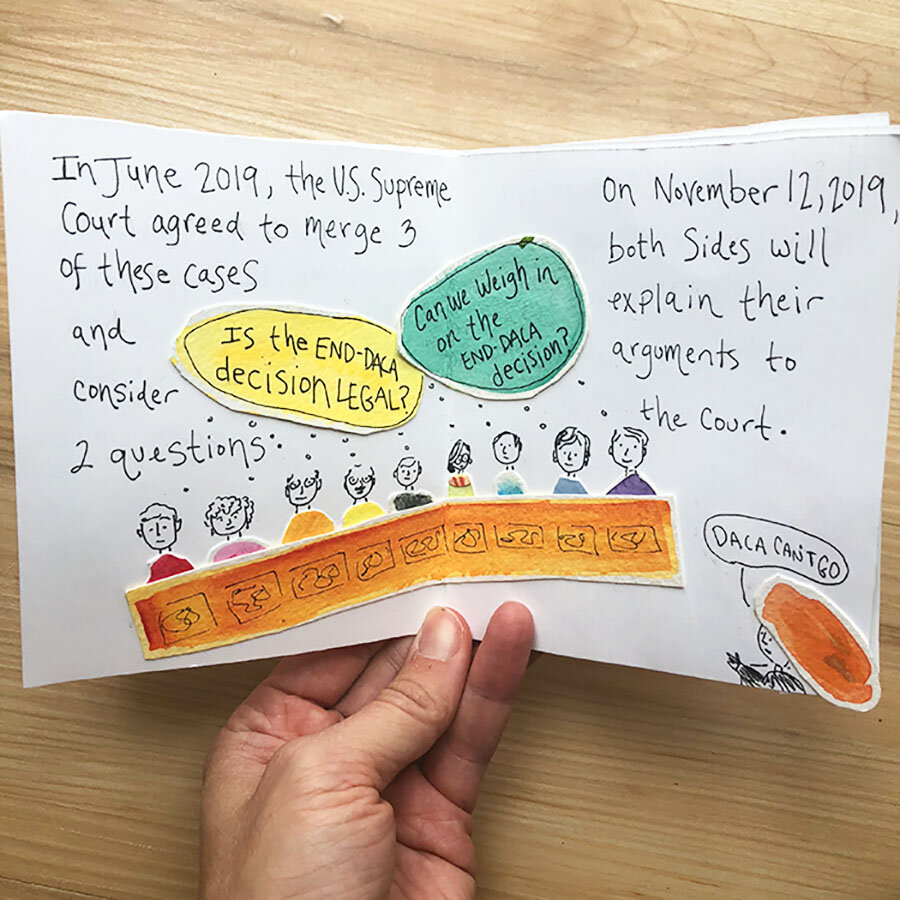 In June 2019, the U.S. Supreme
Court agreed to merge 3
of these cases
and
consider
2 questions:
Is the END-DACA
decision LEGAL?
Can we weigh in
on the
END-DACA
decision?
On November 12, 2019,
both sides will
explain their
arguments to
the Court.
DACA CAN'T GO